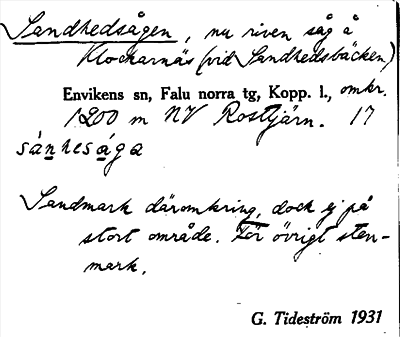 Sandhedsågen, nu riven såg å
Klockarnäs (vid Sandhedsbäcken)
Envikens sn, Falu norra tg, Kopp. l., omkr.
1200 m NV Rostjärn. 17
sánhesåga
Sandmark däromkring, dock ej på
stort område. För övrigt sten-
mark.
G. Tideström 1931